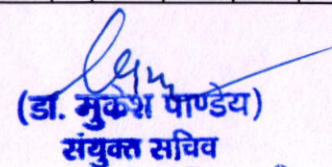 (डा. मुकेश पाण्डेय)
संयुक्त सचिव